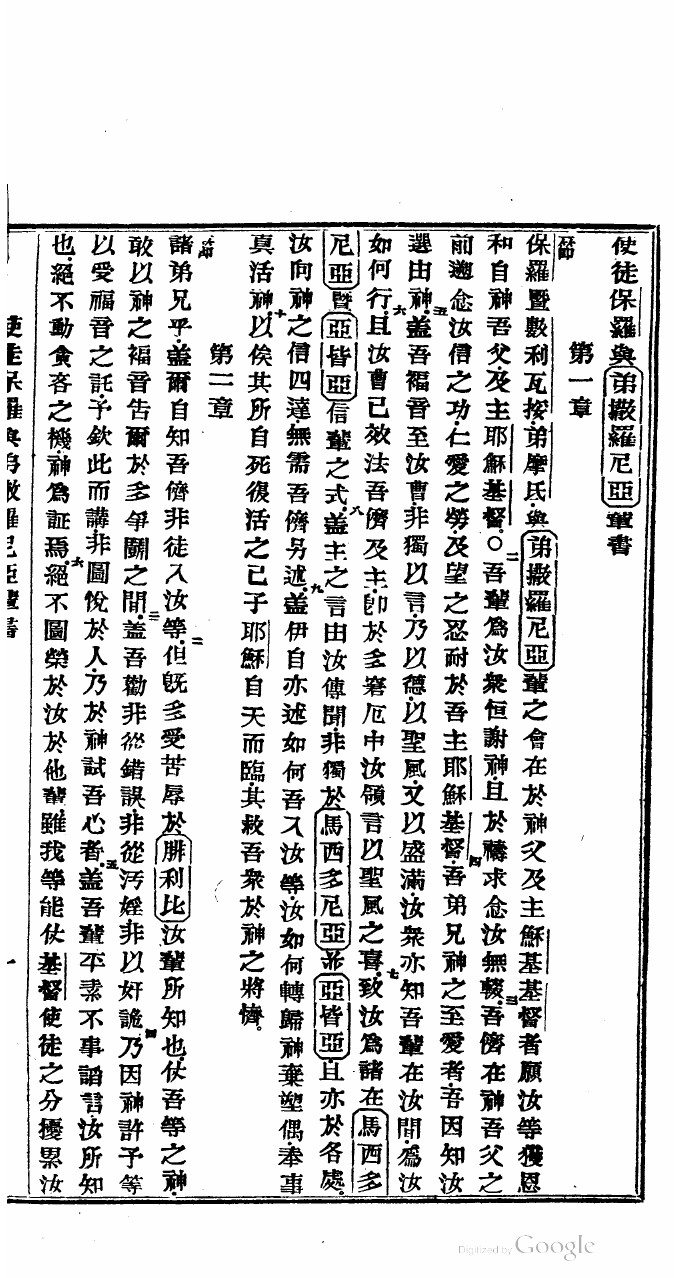 使徒保羅與弟撒羅尼亞輩書
第一章
一節
保羅暨數利瓦挨弟摩氏與弟撒羅尼亞輩之會在於神父及主穌基基督者願汝等獲恩
和自神吾父及主耶穌基督○二吾輩為汝衆恒謝神且於禱求念汝無輟三吾儕在神吾父之
前遡念汝信之功仁愛之勞及望之忍耐於吾主耶穌基督四吾弟兄神之至愛者吾因知汝
選由神五盖吾福音至汝曹非獨以言乃以德以聖風又以盛滿汝衆亦知吾輩在汝間為汝
如何行六且汝曹已效法吾儕及主卽於多窘厄中汝領言以聖風之喜七致汝為諸在馬西多
尼亞暨亞皆亞信輩之式八盖主之言由汝傳聞非獨於馬西多尼亞並亞皆亞且亦於各處
汝向神之信四達無需吾儕另述九盖伊自亦述如何吾入汝等汝如何轉歸神棄塑偶奉事
真活神十以俟其所自死復活之己子耶穌自天而臨其救吾衆於神之將懠。
第二章
一節
諸弟兄乎盖爾自知吾儕非徒入汝等二但旣多受苦辱於腓利比汝輩所知也仗吾等之神
敢以神之福音告爾於多爭鬬之間三盖吾勸非從錯誤非從汚婬非以奸詭四乃因神許予等
以受福音之託予欽此而講非圖悅於人乃於神試吾心者五盖吾輩平素不事謟言汝所知
也絕不動貪吝之機神為証焉六絕不圖榮於汝於他輩雖我等能仗基督使徒之分擾累汝
使徒保羅與弟撒羅尼亞輩書
一
Digitized by Google